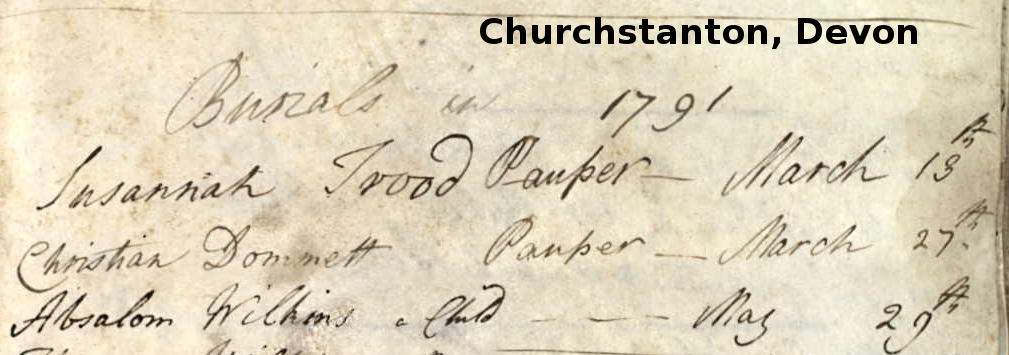 Churchstanton, Devon
Burials in 1791
Susannah Trood Pauper — March 13th
Christian Dommett Pauper — March 27th
Absalom Wilkins a Child — — — May 29th